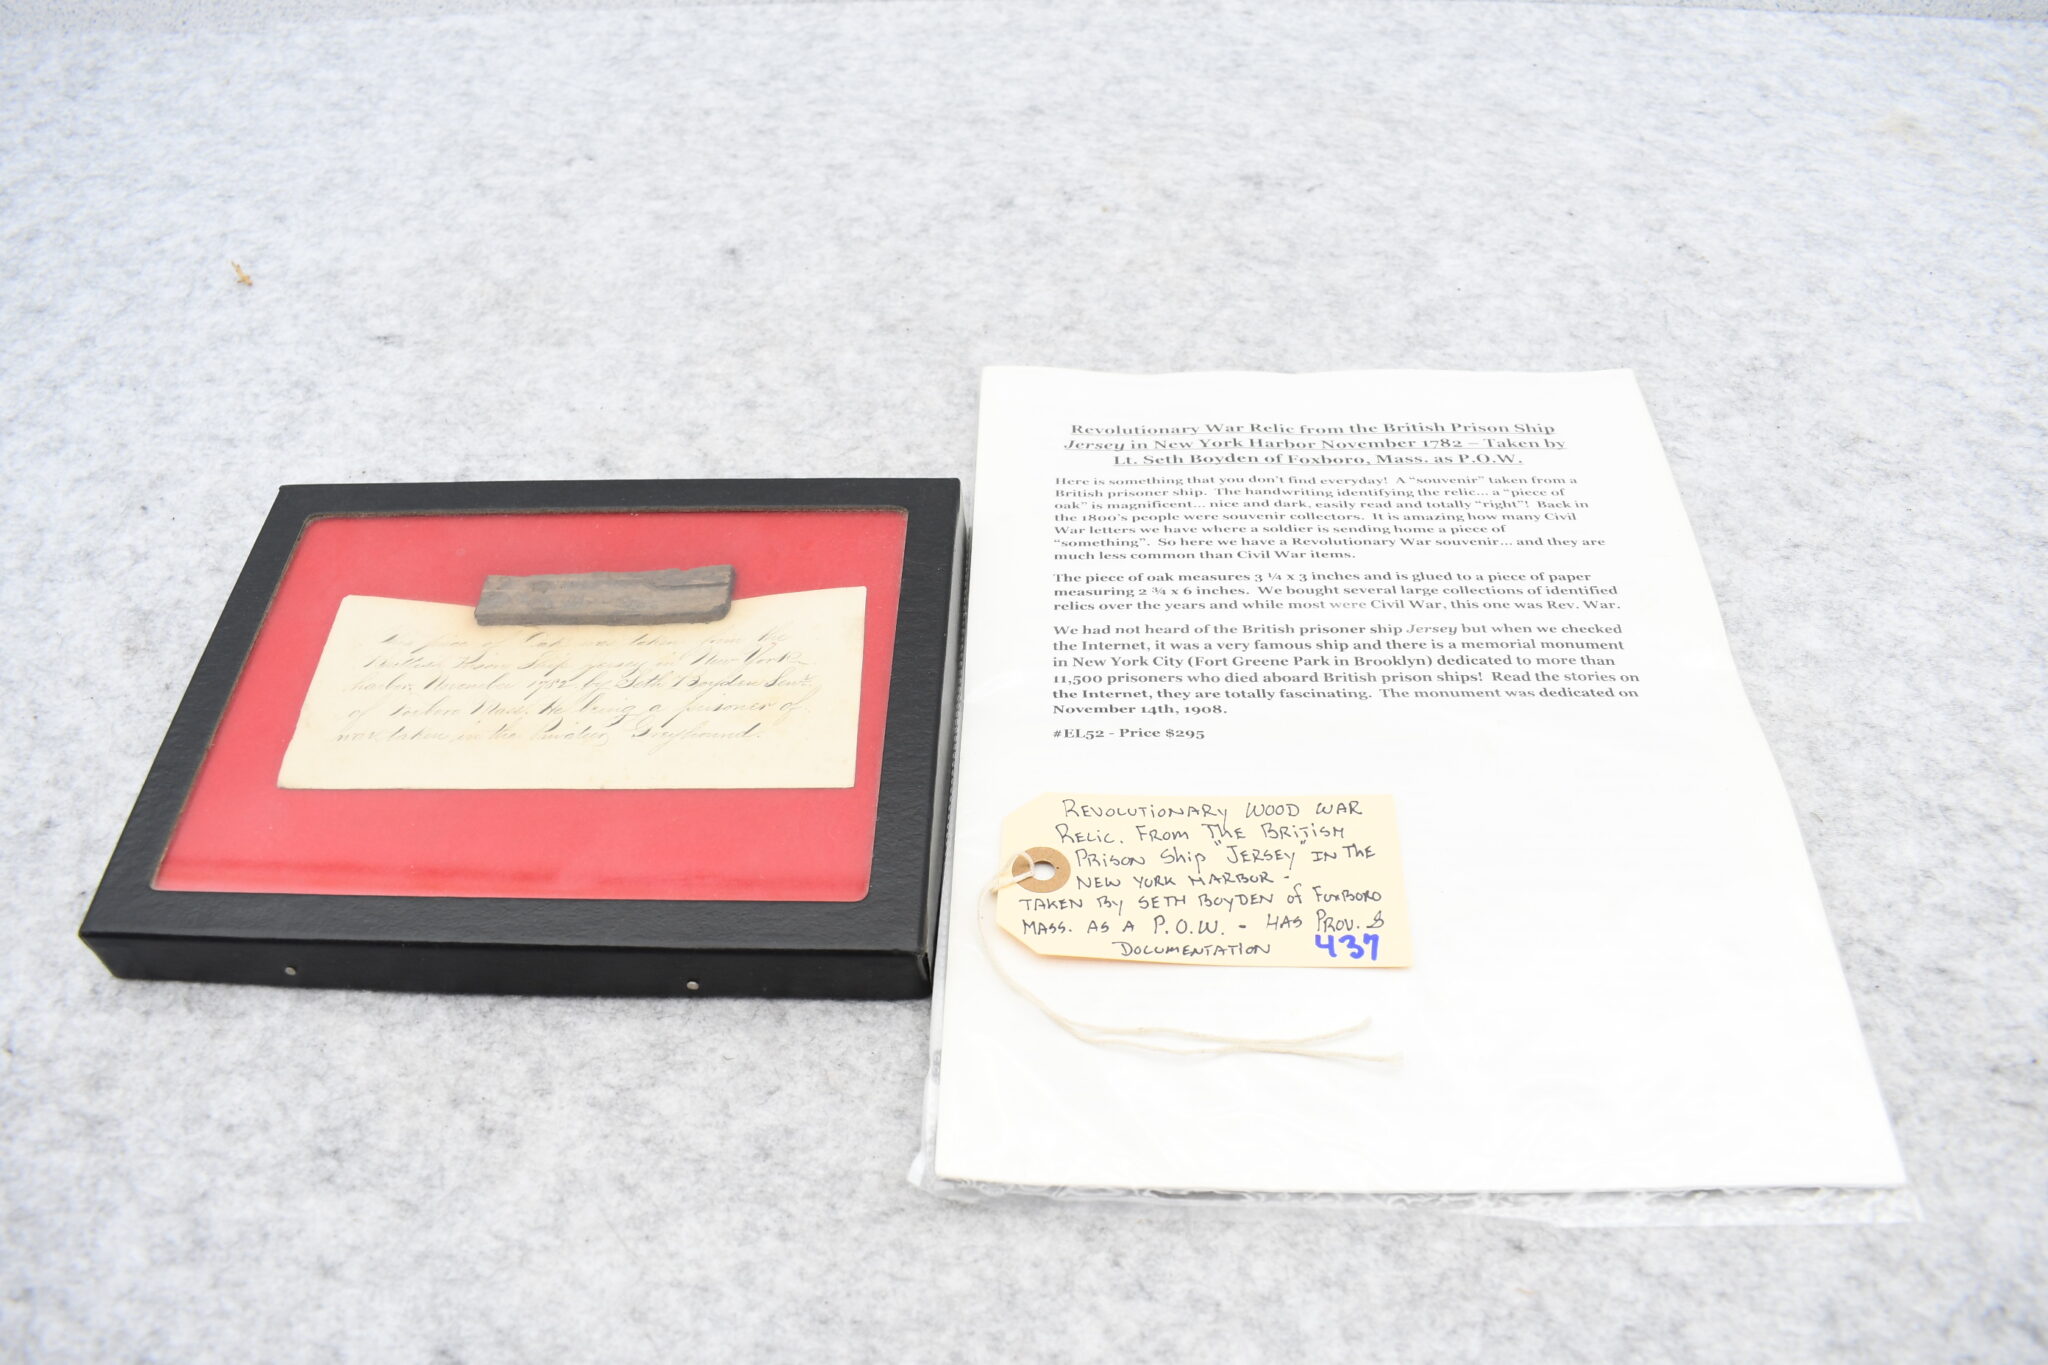 This piece of Oak was taken from the
British Prison Ship Jersey in New York
harbor, November 1782 by Seth Boyden
of Foxboro Mass. he being a prisoner of
war taken in the Privateer Greyhound.
Revolutionary War Relic from the British Prison Ship
Jersey in New York Harbor November 1782 – Taken by
Lt. Seth Boyden of Foxboro, Mass. as P.O.W.
Here is something that you don't find everyday! A "souvenir" taken from a
British prisoner ship. The handwriting identifying the relic... a "piece of
oak" is magnificent... nice and dark, easily read and totally "right"! Back in
the 1800's people were souvenir collectors. It is amazing how many Civil
War letters we have where a soldier is sending home a piece of
"something". So here we have a Revolutionary War souvenir... and they are
much less common than Civil War items.
The piece of oak measures 3 ¼ x 3 inches and is glued to a piece of paper
measuring 2 ¾ x 6 inches. We bought several large collections of identified
relics over the years and while most were Civil War, this one was Rev. War.
We had not heard of the British prisoner ship Jersey but when we checked
the Internet, it was a very famous ship and there is a memorial monument
in New York City (Fort Greene Park in Brooklyn) dedicated to more than
11,500 prisoners who died aboard British prison ships! Read the stories on
the Internet, they are totally fascinating. The monument was dedicated on
November 14th, 1908.
#EL52 - Price $295
REVOLUTIONARY WOOD WAR
RELIC. FROM THE BRITISH
PRISON SHIP "JERSEY" IN THE
NEW YORK HARBOR -
TAKEN BY SETH BOYDEN of FOXBORO
MASS. AS A P.O.W. - HAS PROV. &
DOCUMENTATION 437